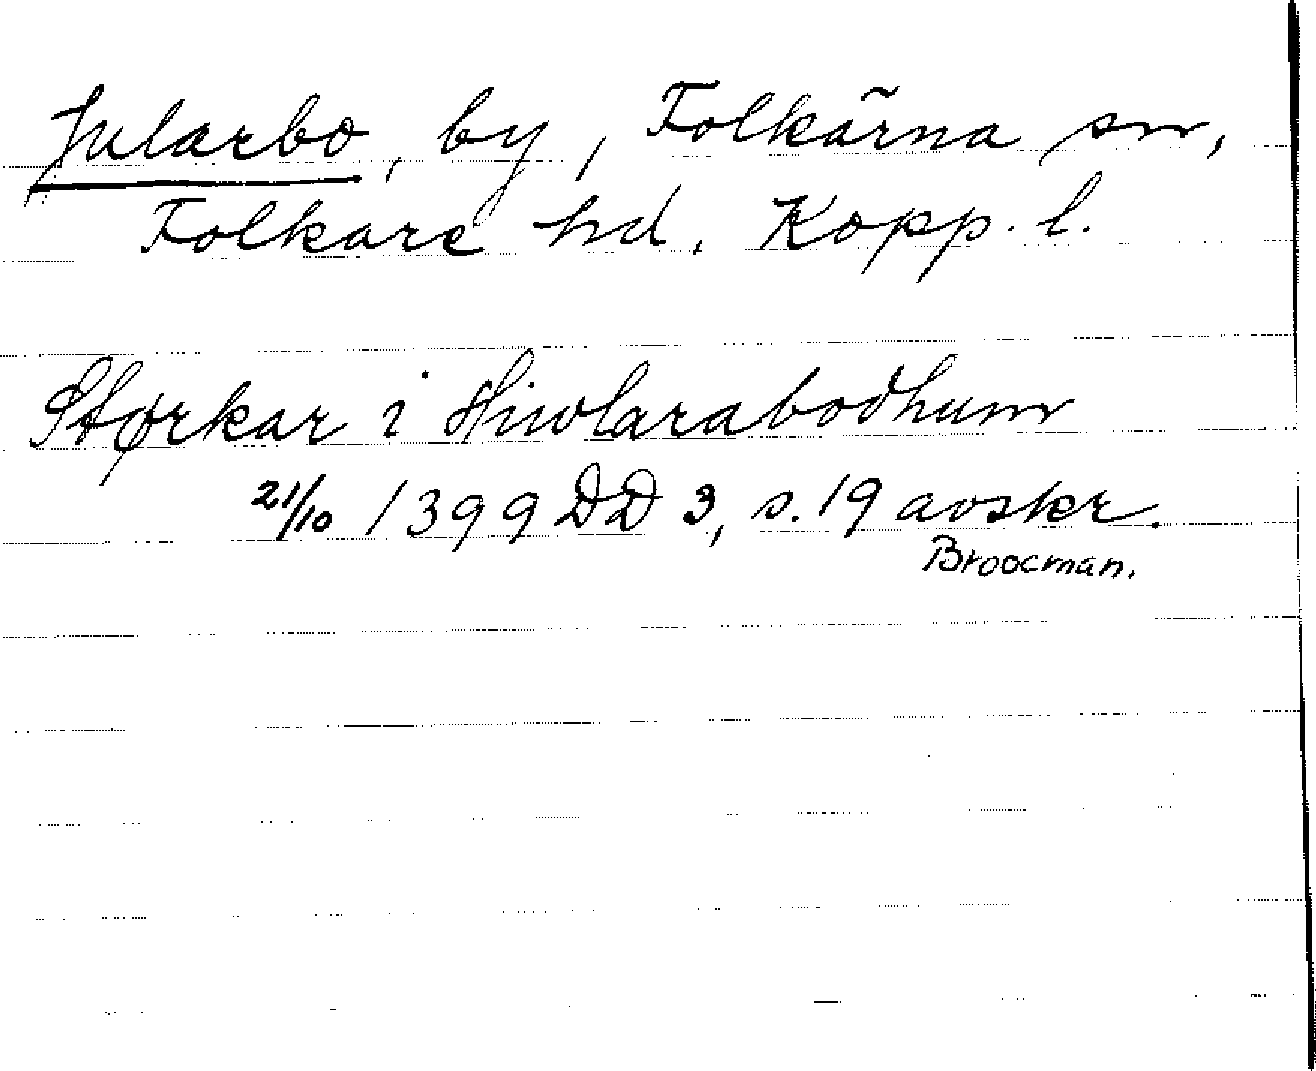 Jularbo, by, Folkärna sn,
Folkare hd. Kopp. l.
Størkar i Hiwlarabodhum
21/10 1399 DD 3, s. 19 avskr.
Broocman.